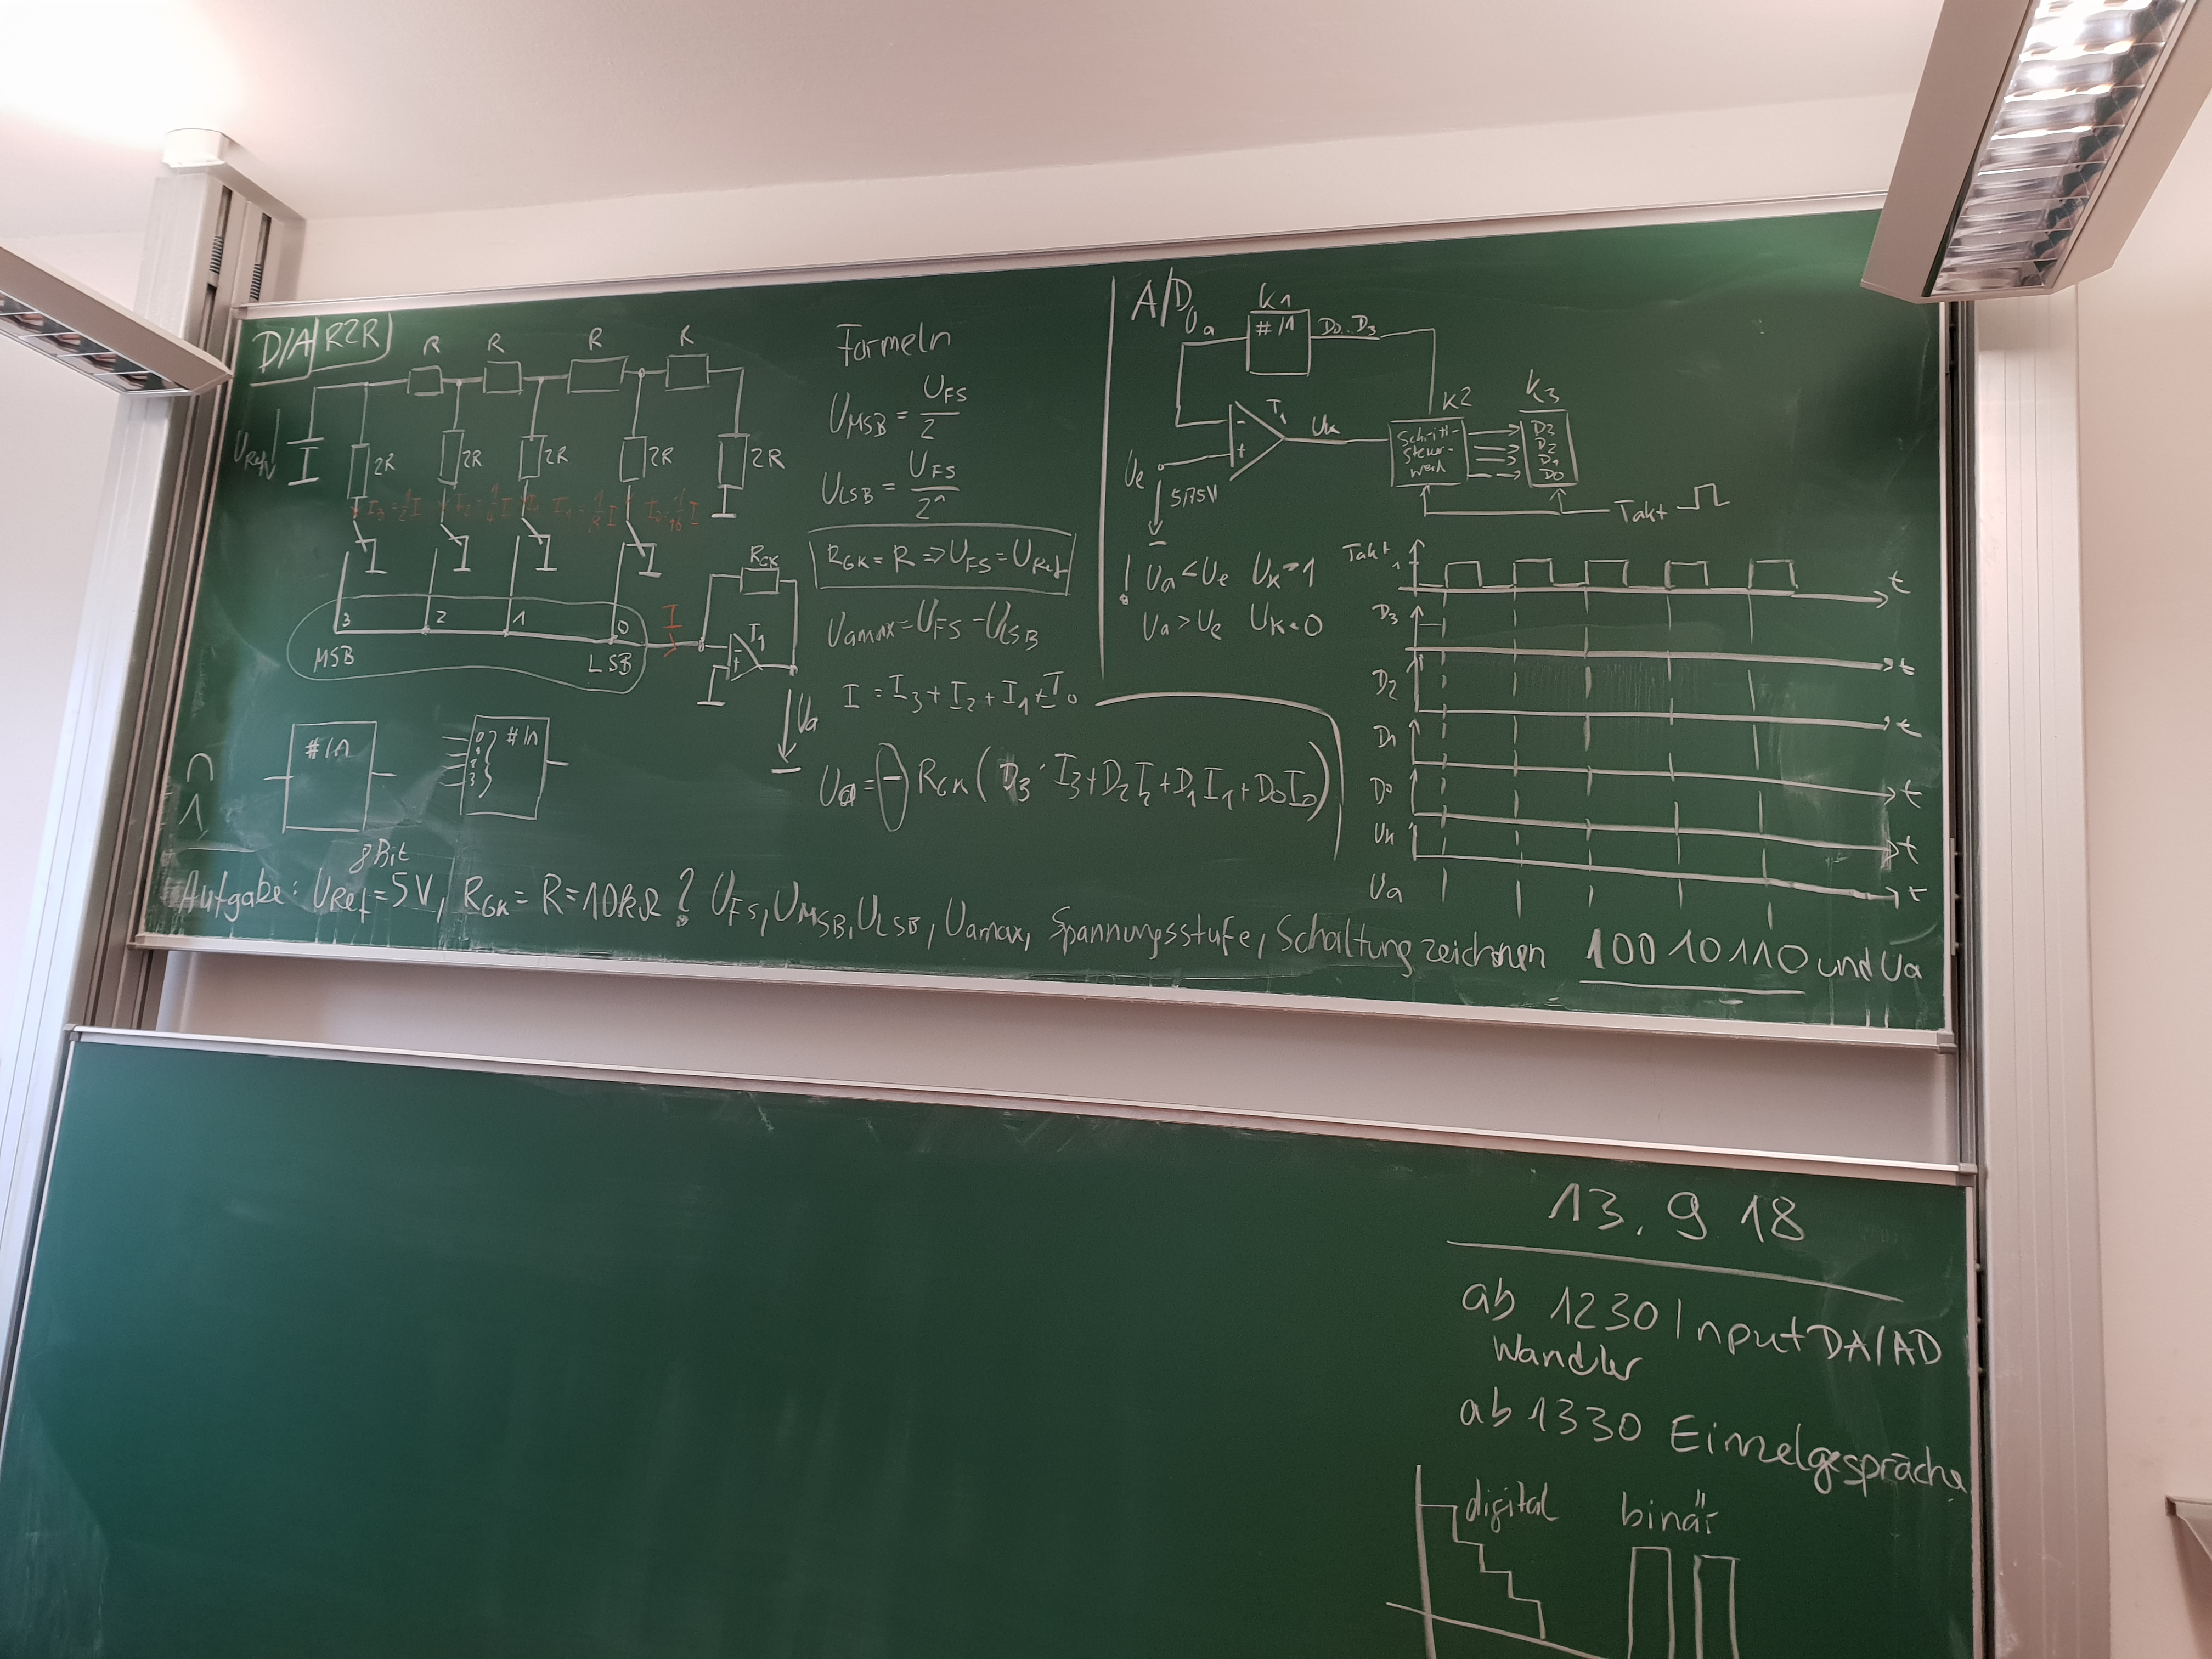 D/A R2R
R R R R
URef
2R 2R 2R 2R 2R
3 2 1 0
MSB LSB
I
RGK
T1
Ua
#/A
0 1 2 3 #/A
Formeln
UMSB = UFS/2
ULSB = UFS/2^n
RGK = R => UFS = URef
Uamax = UFS - ULSB
I = I3 + I2 + I1 + I0
Ua = - RGK ( D3 · I3 + D2 I2 + D1 I1 + D0 I0 )
A/D
Ua
K1
#/A
D0..D3
- + T1
Uk
K2
Schritt-
steuer-
werk
K3
D2
D2
D1
D0
Ue
Takt
! Ua < Ue Uk = 1
Ua > Ue Uk = 0
Takt 1 t
D3 t
D2 t
D1 t
D0 t
Uk t
Ua
8 Bit
Aufgabe: URef = 5V, RGK = R = 10kΩ ? UFS, UMSB, ULSB, Uamax, Spannungsstufe, Schaltung zeichnen 10010110 und Ua
13. 9 18
ab 1230 Input DA/AD
Wandler
ab 1330 Einzelgespräche
digital binär